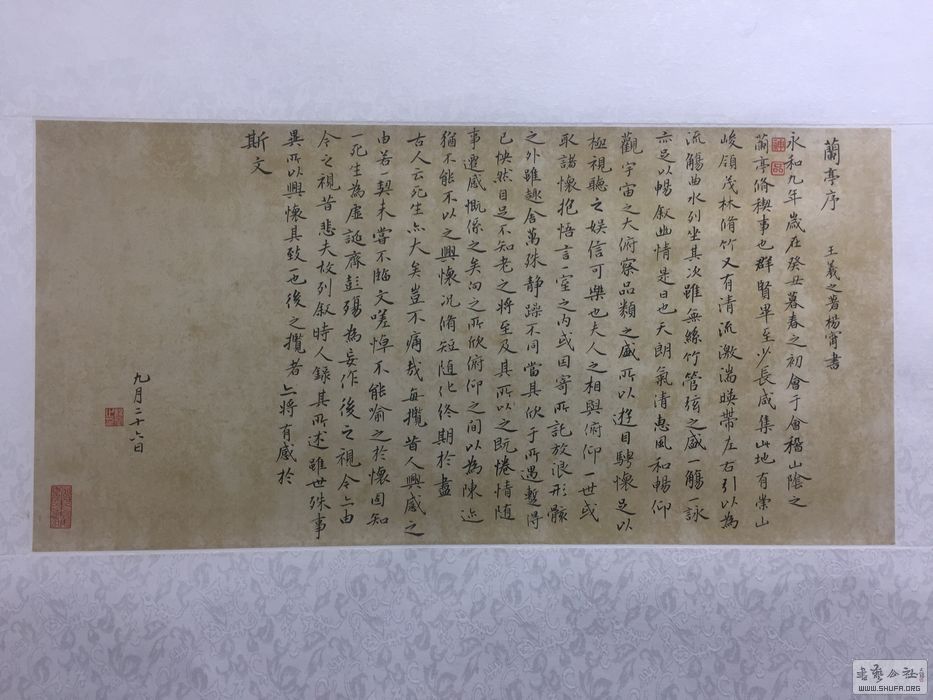 蘭亭序
王羲之著楊書
永和九年歲在癸丑暮春之初會于會稽山陰之
蘭亭脩稧事也群賢畢至少長咸集此地有崇山
峻領茂林脩竹又有清流激湍暎帶左右引以為
流觴曲水列坐其次雖無絲竹管弦之盛一觴一詠
亦足以暢叙幽情是日也天朗氣清惠風和暢仰
觀宇宙之大俯察品類之盛所以遊目騁懷足以
極視聽之娛信可樂也夫人之相與俯仰一世或
取諸懷抱悟言一室之內或因寄所託放浪形骸
之外雖趣舍萬殊静躁不同當其欣于所遇暫得
己快然自足不知老之將至及其所以之既惓情隨
事遷感慨係之矣向之所欣俯仰之間以為陳迹
猶不能不以之興懷況脩短隨化終期於盡
古人云死生亦大矣豈不痛哉每攬昔人興感之
由若一契未嘗不臨文嗟悼不能喻之於懷固知
一死生為虛誕齊彭殤為妄作後之視今亦由
今之視昔悲夫故列叙時人錄其所述雖世殊事
異所以興懷其致一也後之攬者亦將有感於
斯文
九月二十六日
書藝公社
WWW.SHUFA.ORG